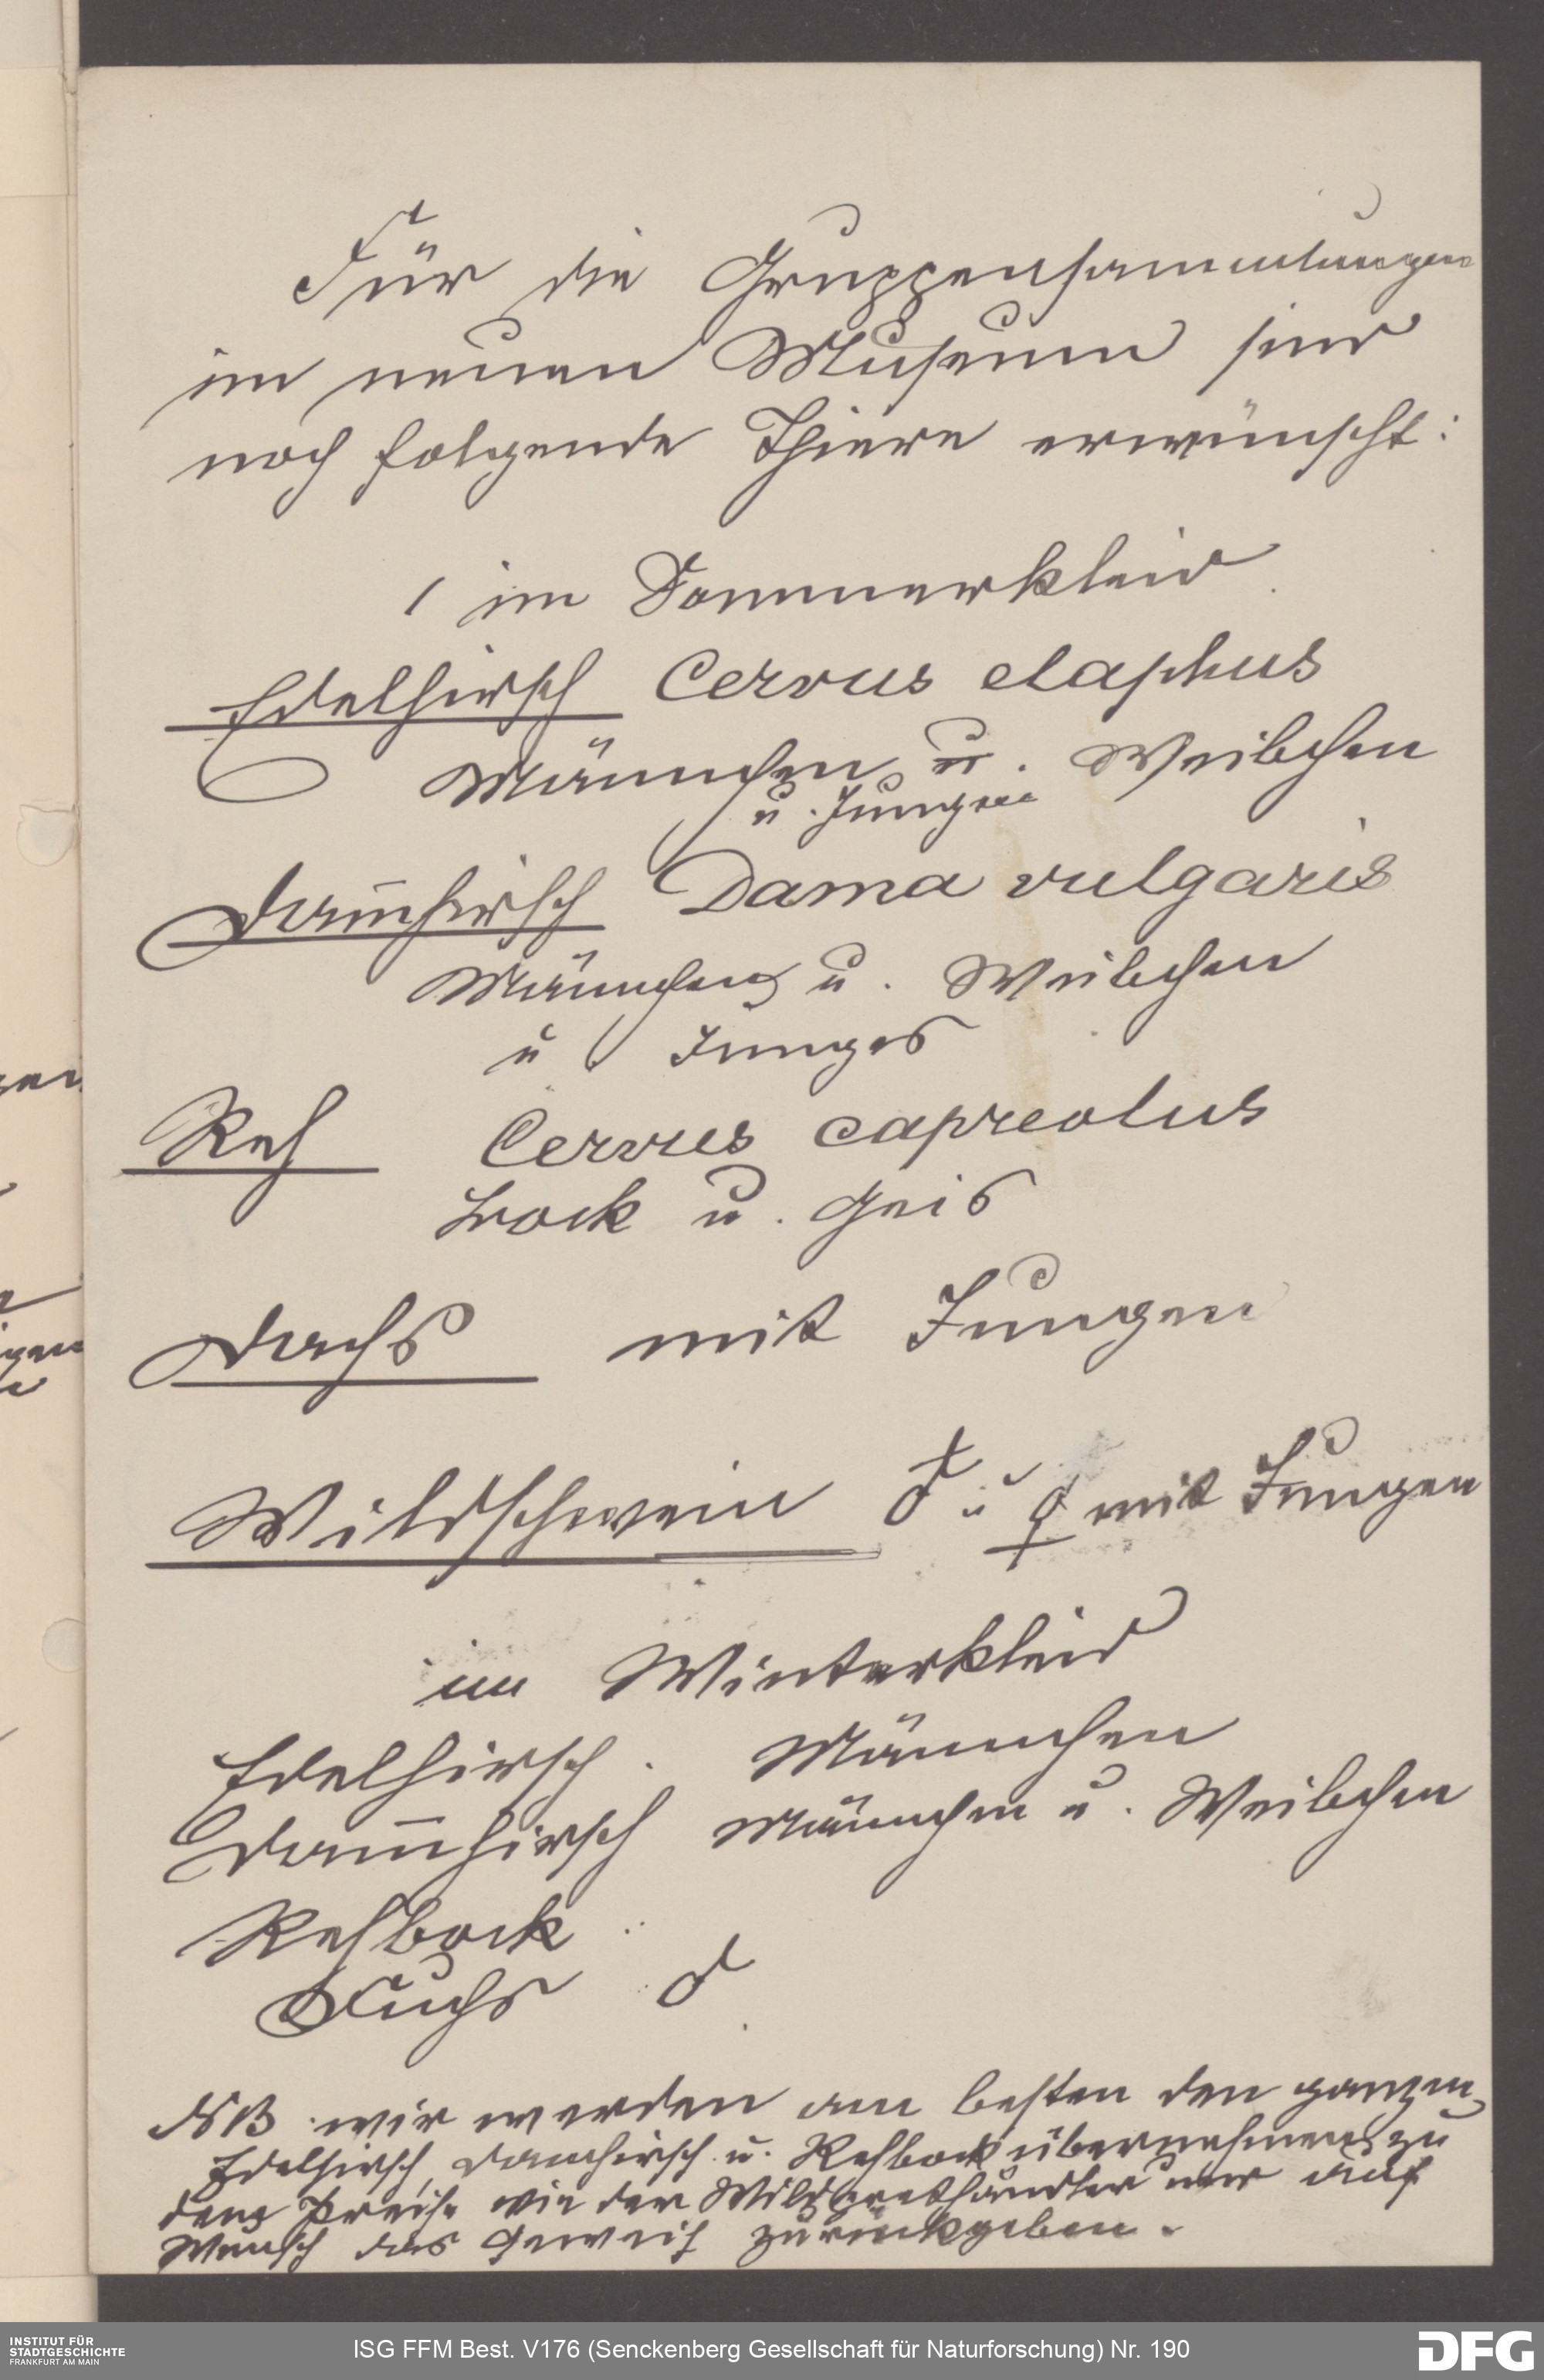 Für die Gruppensammlungen
im neuen Museum sind
noch folgende Thiere erwünscht:
1 im Sommerkleid
Edelhirsch Cervus elaphus
Männchen u. Weibchen
u. Junges
Dam̄hirsch Dama vulgaris
Männchen u. Weibchen
u Junges
Reh Cervus capreolus
Bock u. Geis
Dachs mit Jungen
Wildschwein ♂ u ♀ mit Jungen
im Winterkleid
Edelhirsch. Männchen
Dam̄hirsch Männchen u. Weibchen
Rehbock
Fuchs ♂
NB wir werden am besten den ganzen
Edelhirsch, Damhirsch u. Rehbock übernehmen zu
dem Preise wie der Wildprethändler und auf
Wunsch das Geweih zurückgeben.
INSTITUT FÜR
STADTGESCHICHTE
FRANKFURT AM MAIN
ISG FFM Best. V176 (Senckenberg Gesellschaft für Naturforschung) Nr. 190
DFG